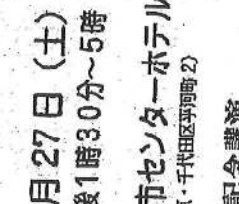 月27日（土）
後1時30分～5時
市センターホテル
京・千代田区平河町2）
記念講演